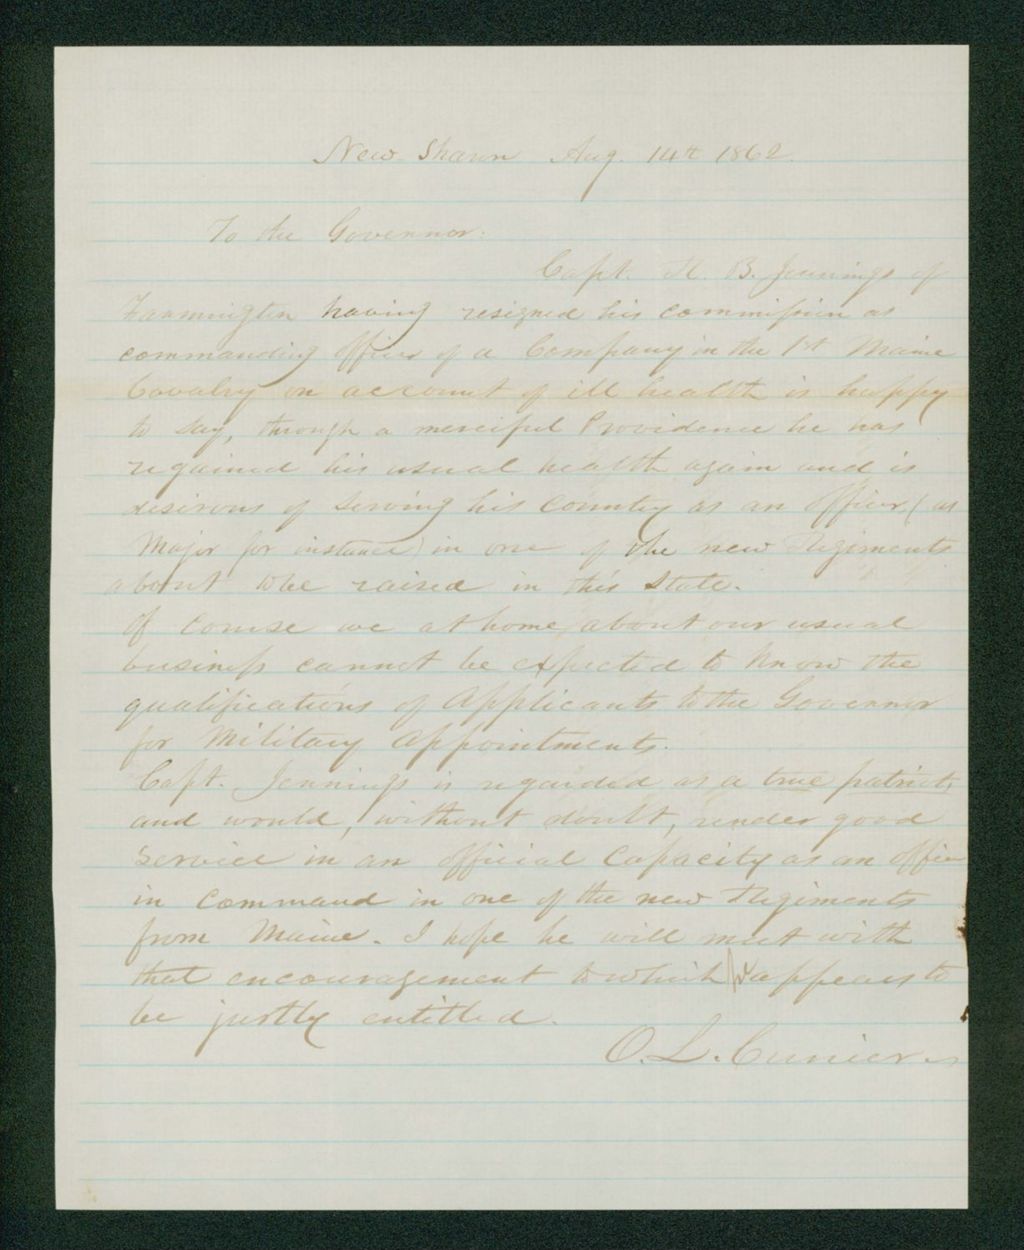 New Sharon Aug. 14th 1862.
To the Governor:
Capt. H. B. Jennings of
Farmington having resigned his commission as
commanding officer of a Company in the 1st Maine
Cavalry on account of ill health is happy
to say, through a merciful Providence he has
regained his usual health again and is
desirous of serving his country as an officer (as
Major for instance) in one of the new Regiments
about to be raised in this State.
Of course we at home about our usual
business cannot be expected to know the
qualifications of Applicants to the Governor
for Military Appointments.
Capt. Jennings is regarded as a true patriot,
and would, without doubt, render good
service in an official capacity as an officer
in command in one of the new Regiments
from Maine. I hope he will meet with
that encouragement to which he appears to
be justly entitled.
O. L. Currier